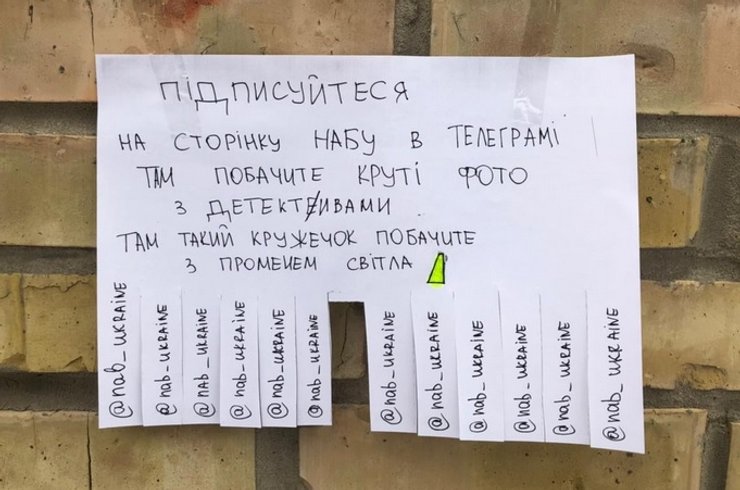 ПІДПИСУЙТЕСЯ
НА СТОРІНКУ НАБУ В ТЕЛЕГРАМІ
ТАМ ПОБАЧИТЕ КРУТІ ФОТО
З ДЕТЕКТИВАМИ
ТАМ ТАКИЙ КРУЖЕЧОК ПОБАЧИТЕ
З ПРОМЕНЕМ СВІТЛА
@nab_UKRAINE
@nab_UKRAINE
@nab_UKRAINE
@nab_UKRAINE
@nab_UKRAINE
@nab_UKRAINE
@nab_UKRAINE
@nab_UKRAINE
@nab_UKRAINE
@nab_UKRAINE
@nab_UKRAINE
@nab_UKRAINE